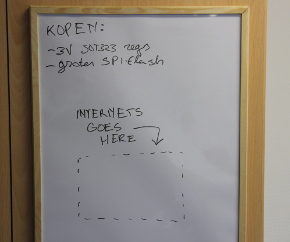 KOPEN:
-3V SOT323 regs
- groter SPI flash
INTERNETS
GOES
HERE